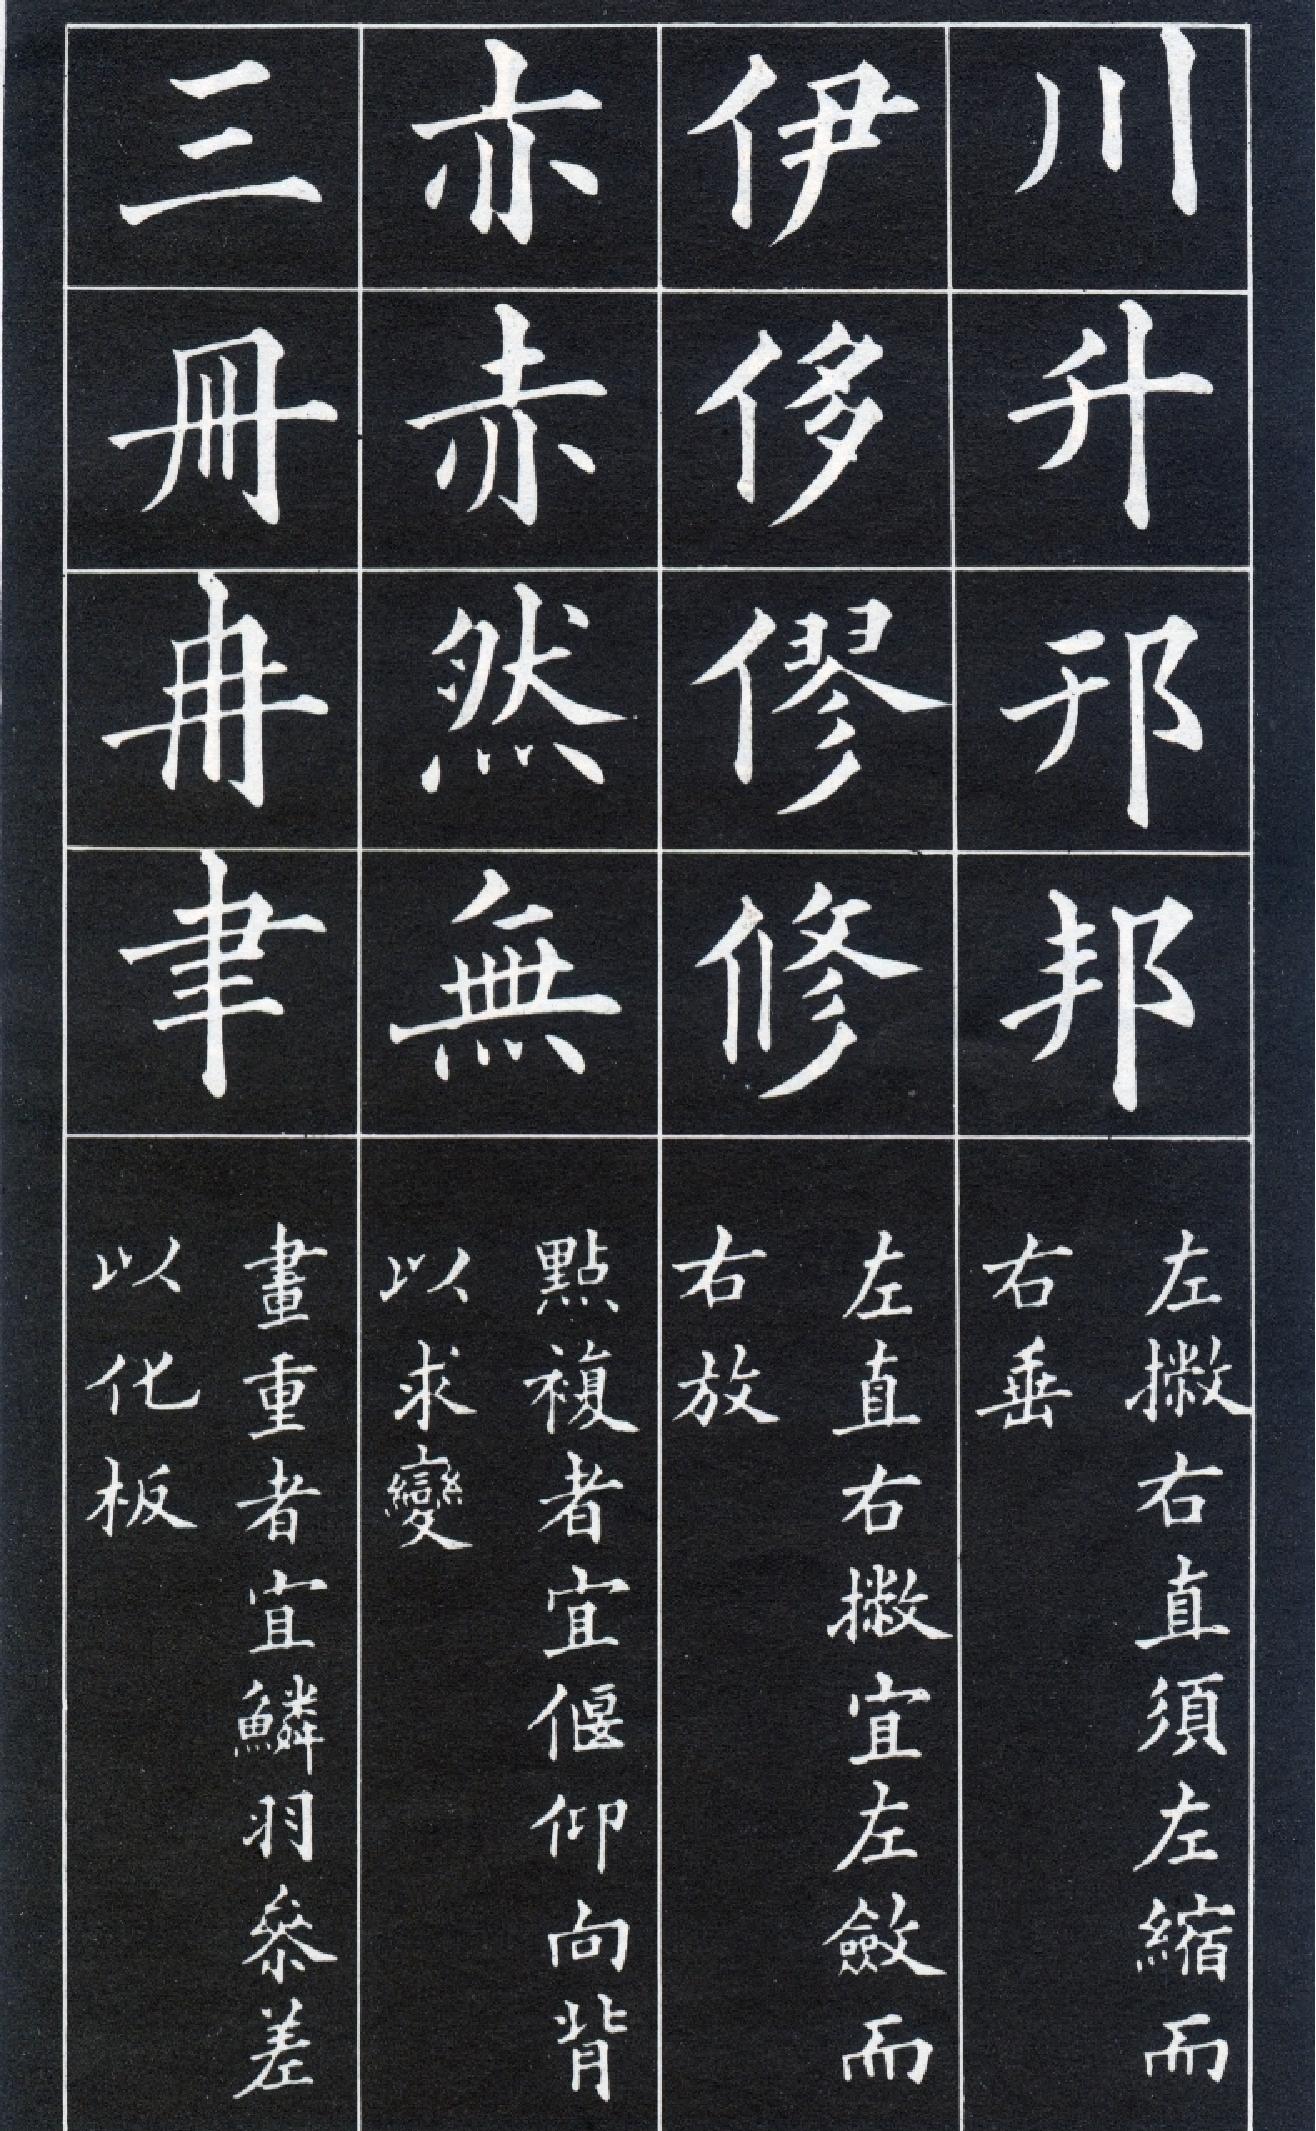 川升邗邦
左撇右直須左縮而
右垂
伊侈僇修
左直右撇宜左斂而
右放
亦赤然無
點複者宜偃仰向背
以求變
三冊冉聿
畫重者宜鱗羽參差
以化板